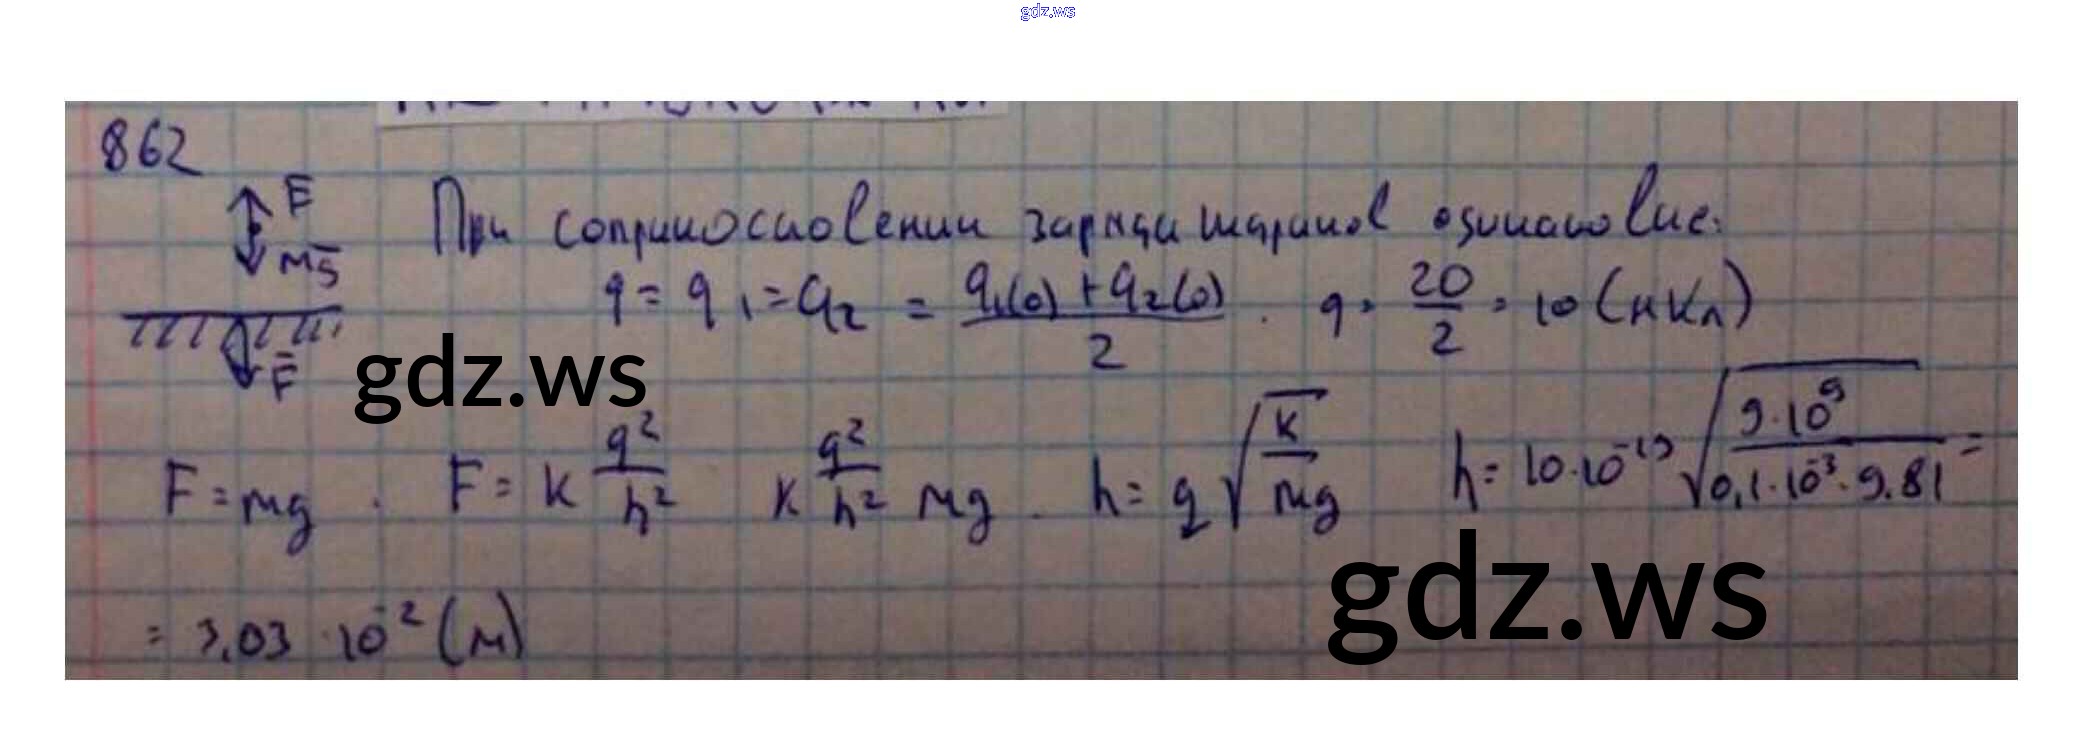 gdz.ws
862
F
При соприкосновении заряды шариков одинаковые:
mg
q = q₁ = q₂ = q₁(0) + q₂(0) / 2 . q = 20 / 2 = 10 (нКл)
F
gdz.ws
F = mg . F = k q² / h² k q² / h² mg . h = q √ k / mg h = 10·10⁻¹⁹ √ 9·10⁹ / 0,1·10⁻³·9.81 =
gdz.ws
= 3,03 · 10⁻² (м)